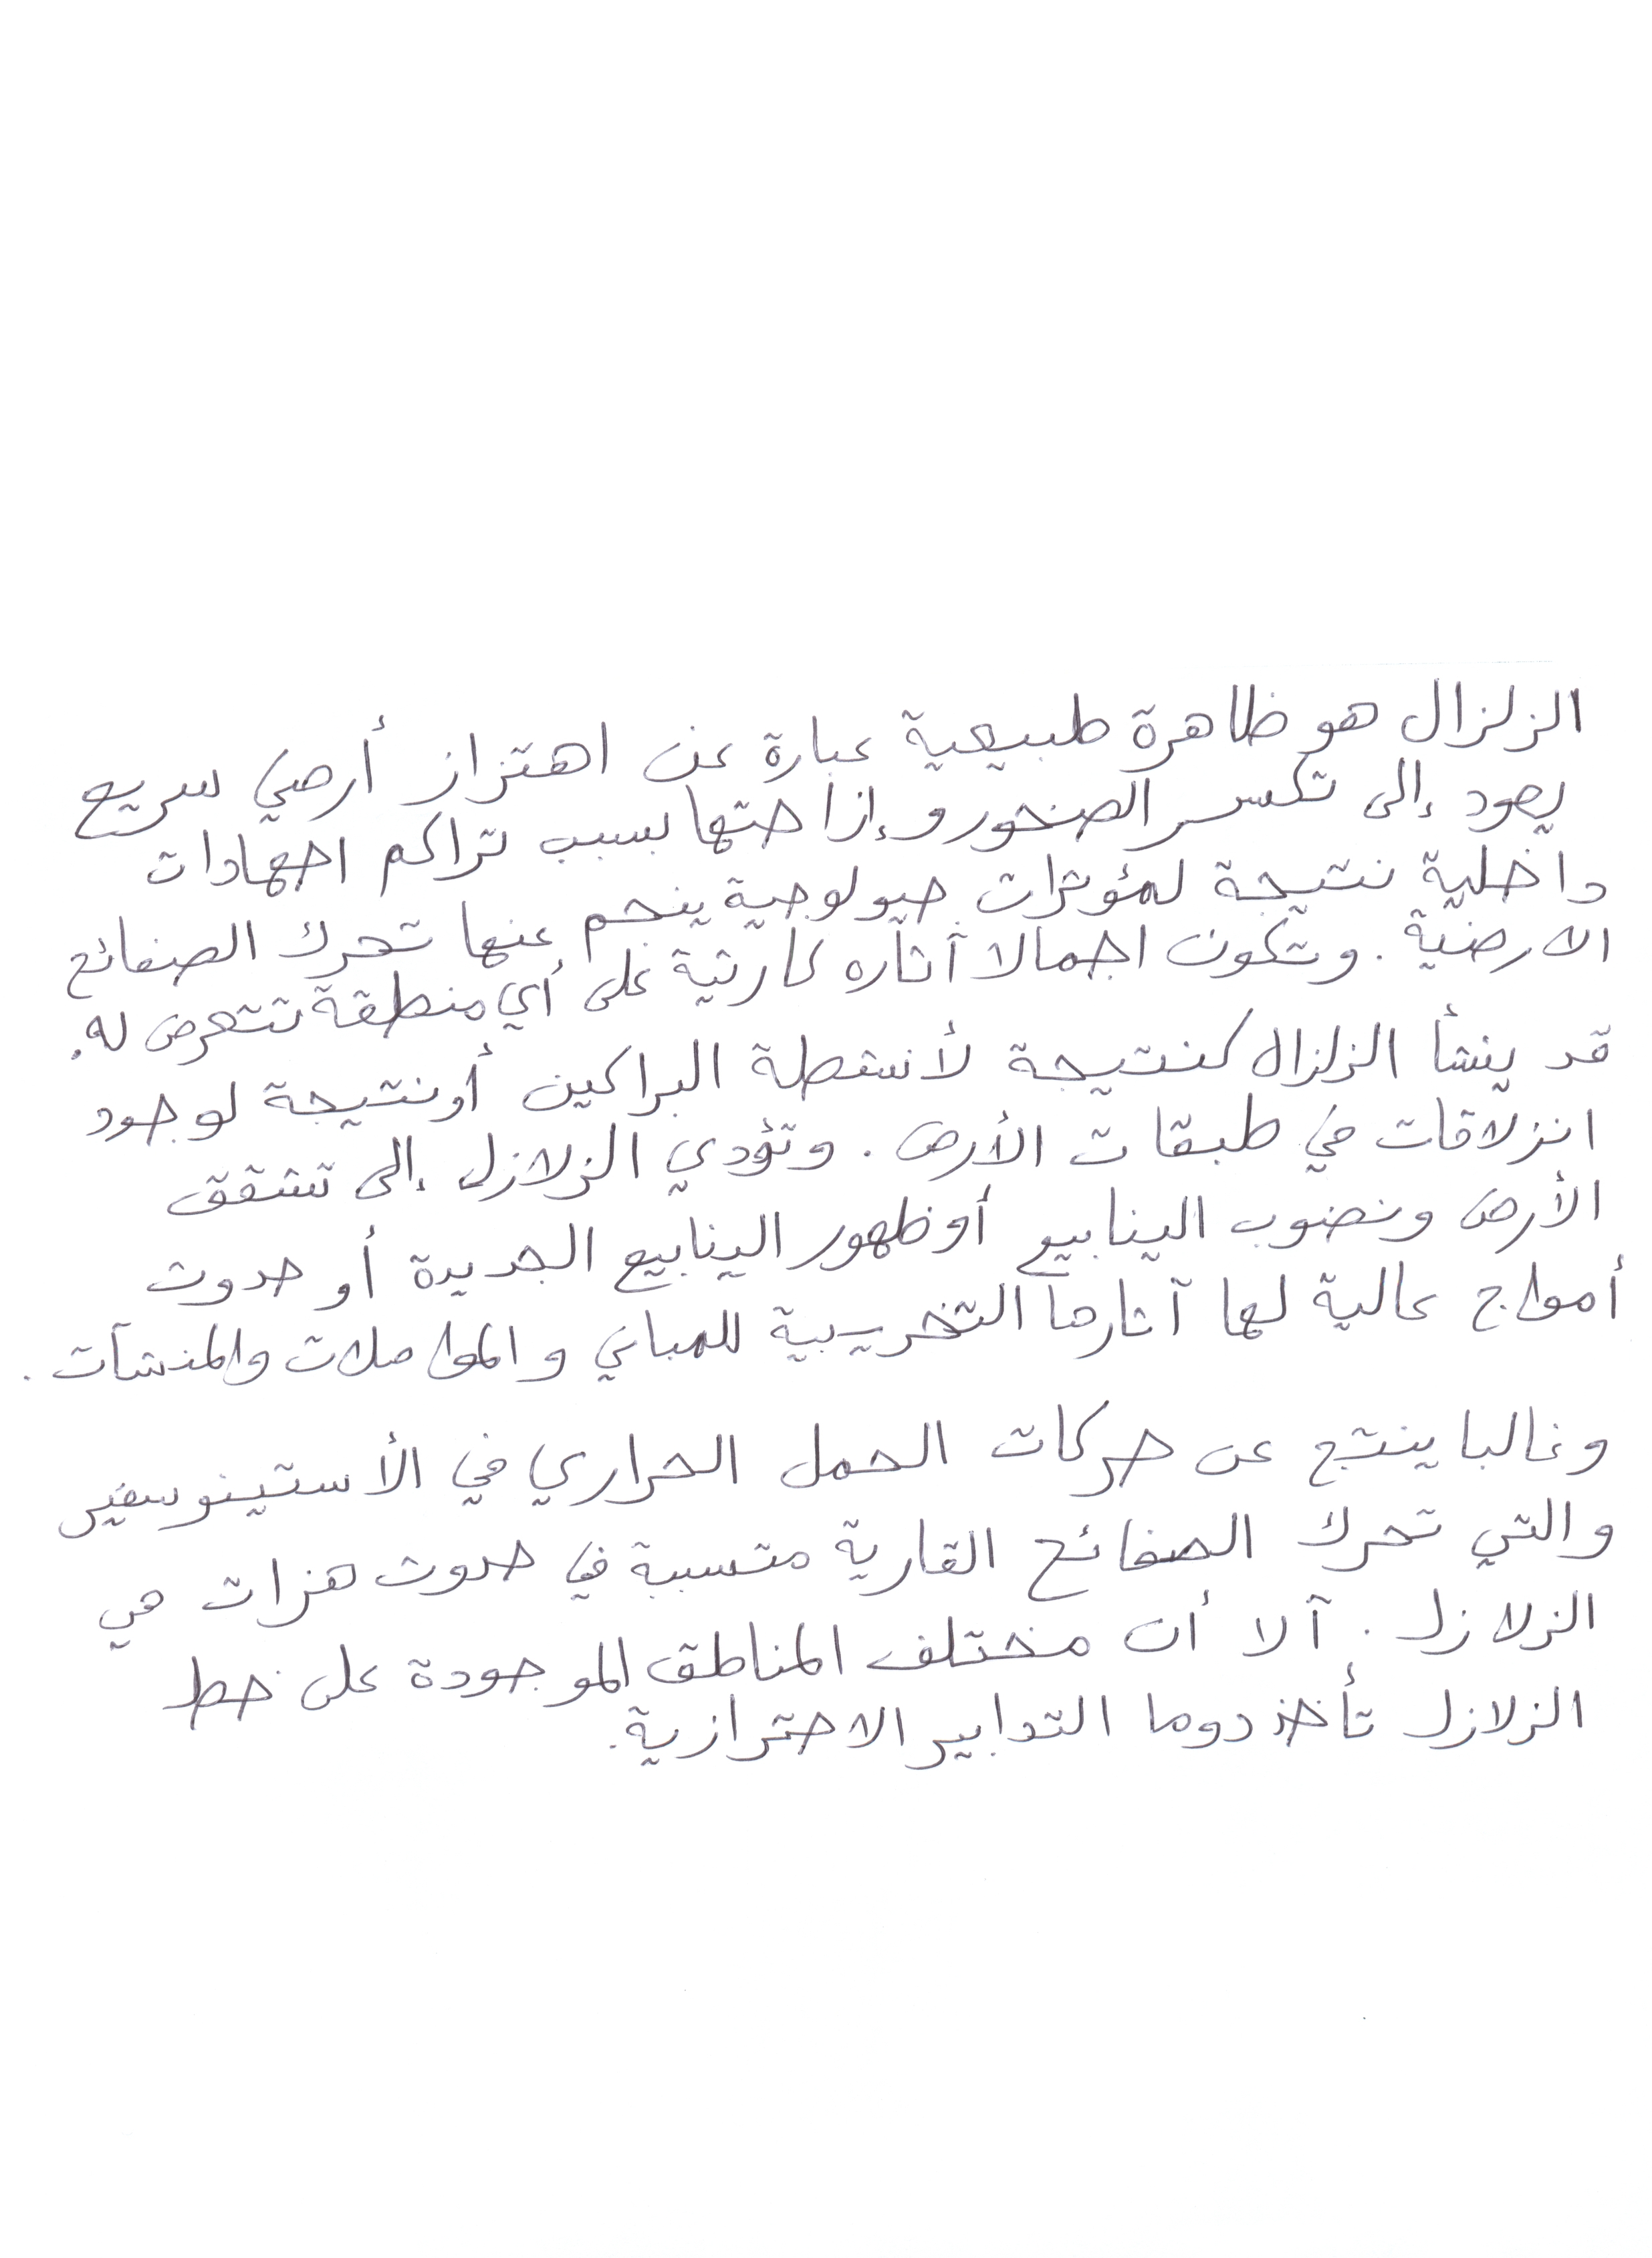 الزلزال هو ظاهرة طبيعية عبارة عن اهتزاز أرضي سريع
يعود إلى تكسر الصخور وإزاحتها بسبب تراكم اجهادات
داخلية نتيجة لمؤثرات جيولوجية ينجم عنها تحرك الصفائح
الارضية . وتكون اجمالا آثاره كارثية على أي منطقة تتعرض له.
قد ينشأ الزلزال كنتيجة لأنشطة البراكين أو نتيجة لوجود
انزلاقات في طبقات الأرض . وتؤدي الزلازل إلى تشقق
الأرض ونضوب الينابيع أو ظهور الينابيع الجديدة أو حدوث
أمواج عالية لها آثارها التخريبية للمباني والمواصلات والمنشآت .
وغالبا ينتج عن حركات الحمل الحراري في الأستينوسفير
والتي تحرك الصفائح القارية متسببة في حدوث هزات هي
الزلازل . آلا أن مختلف المناطق الموجودة على خط
الزلازل تأخذ دوما التدابير الاحترازية.